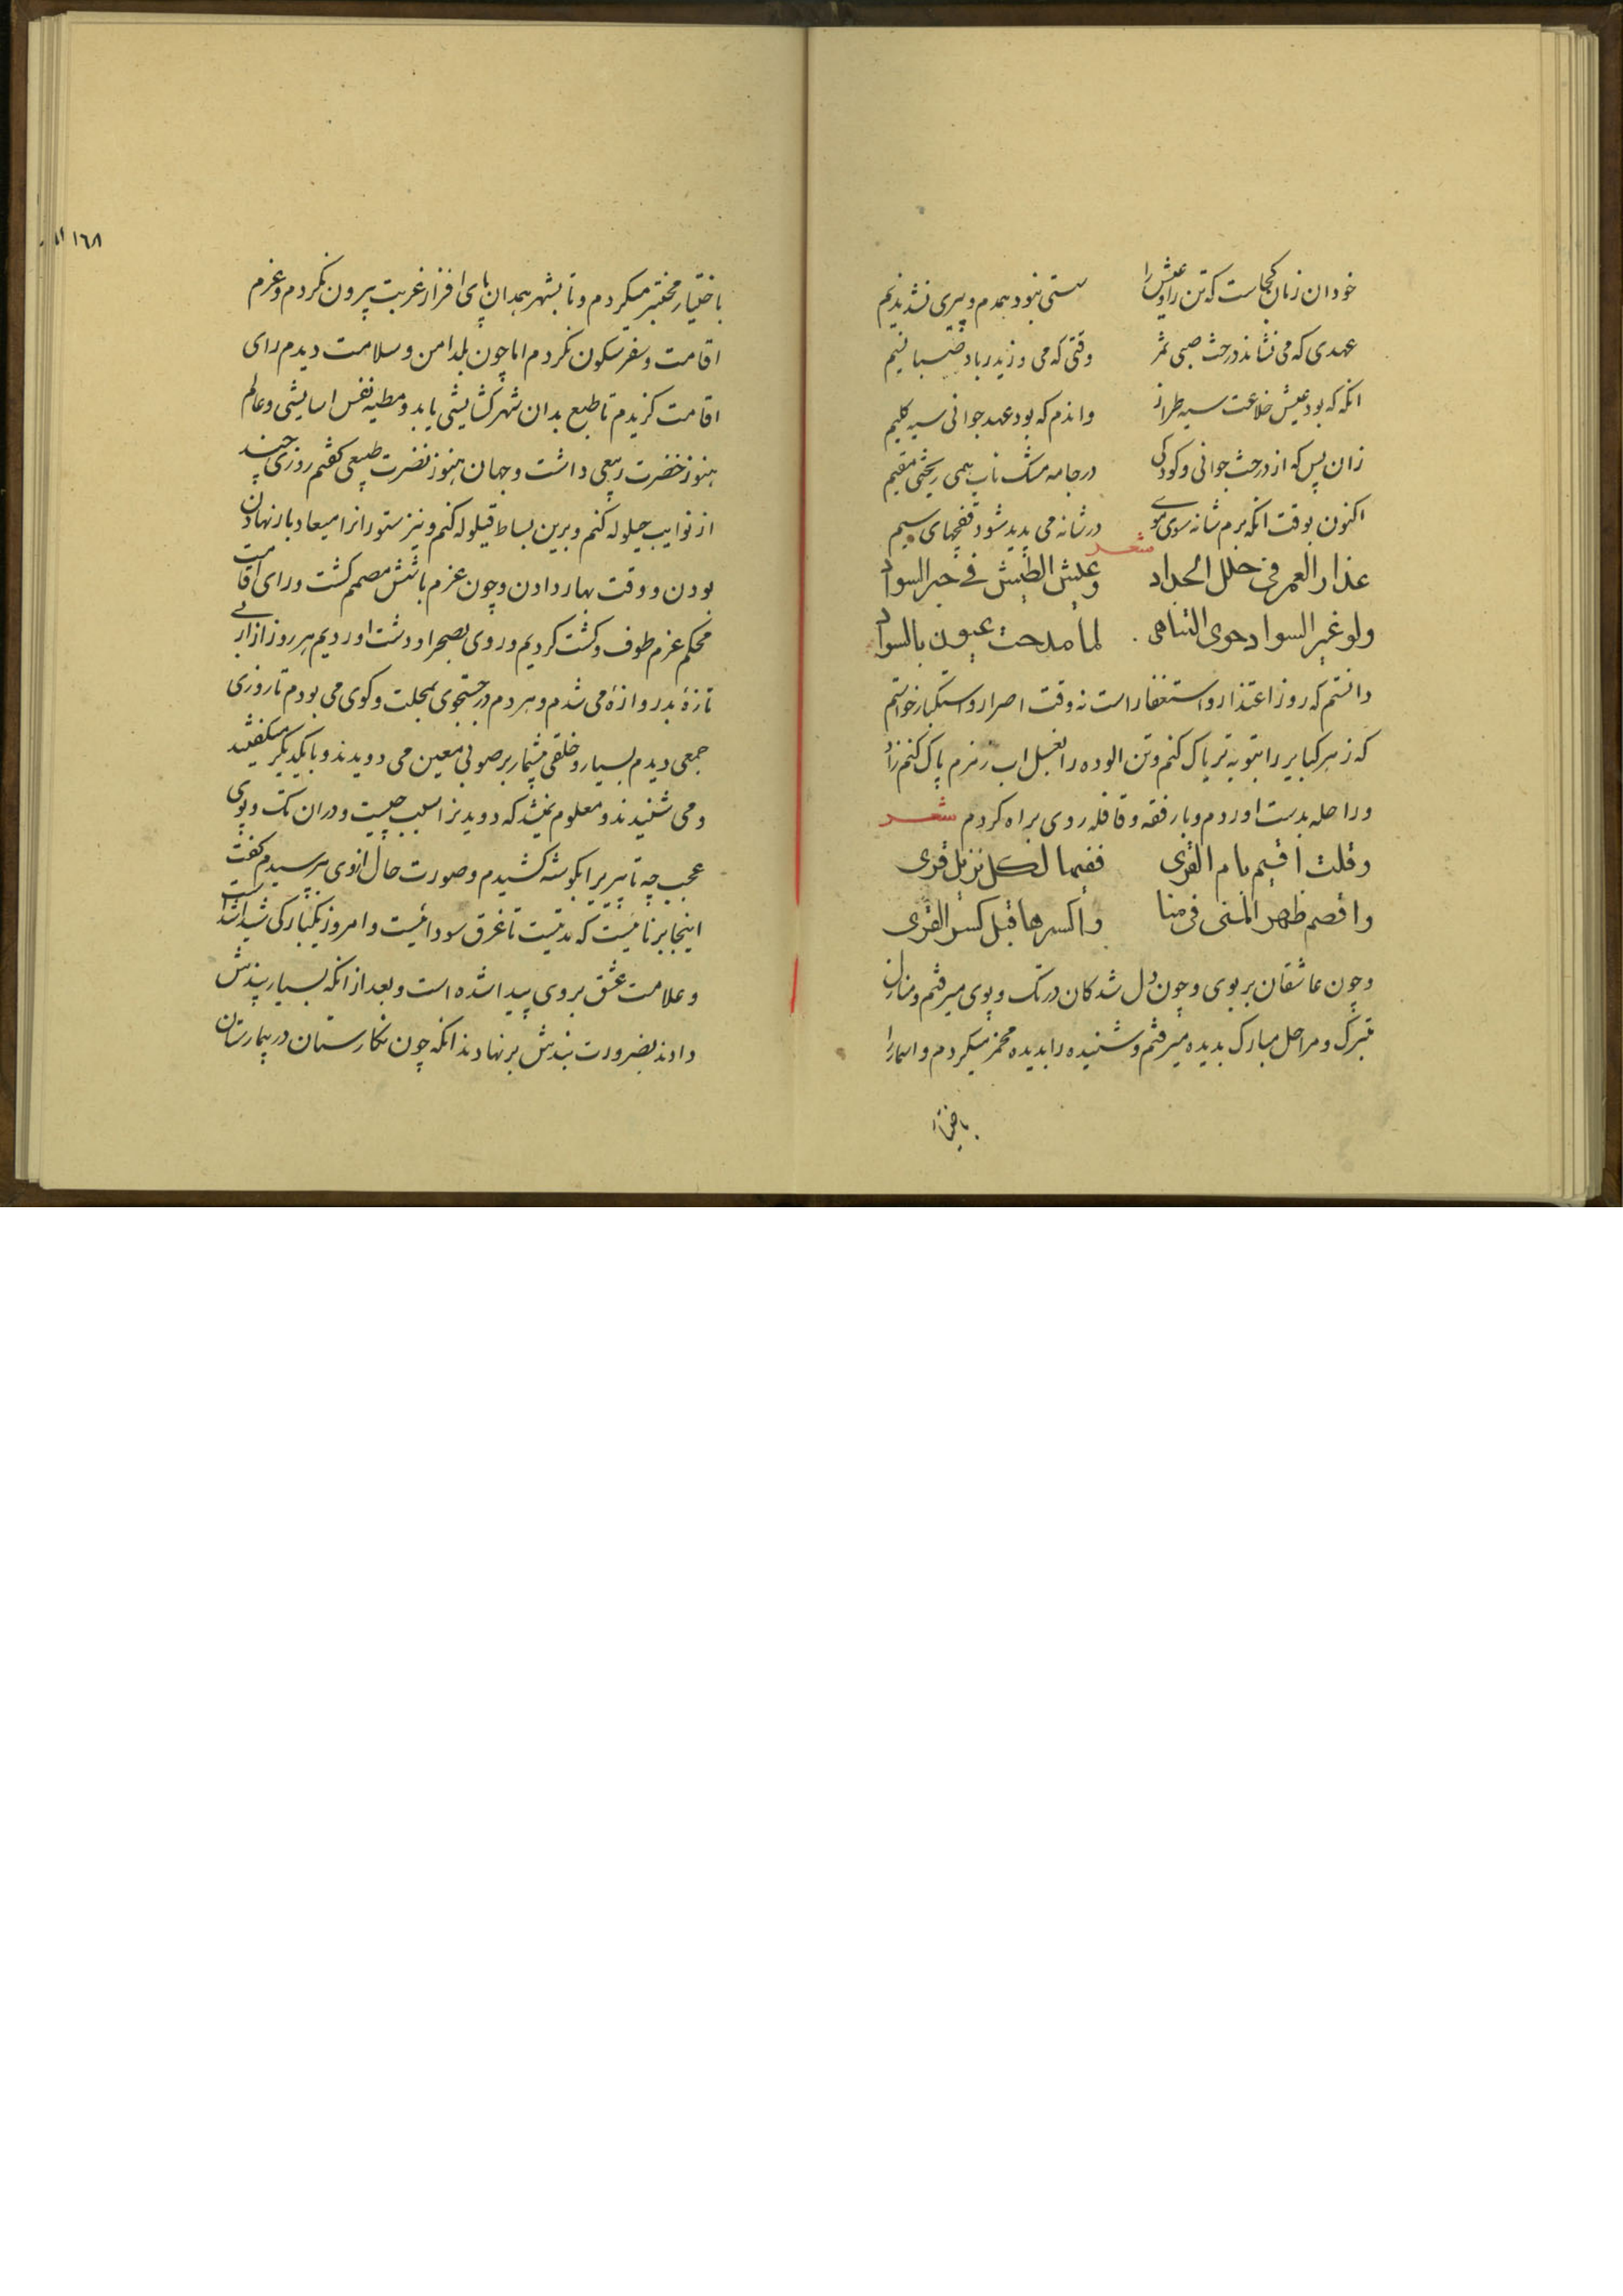 خود ان زمان کجاست که تن را و عیش را سستی نبود همدم و پیری نشد ندیم
عهدی که می نشاند درخت صبی ثمر وقتی که می وزید ز باد صبا نسیم
انکه که بود عیش خلاعت سیه طراز واندم که بود عهد جوانی سیه کلیم
زان پس که از درخت جوانی و کودکی در جامه مشک ناب همی ریختی مقیم
اکنون بوقت انکه برم شانه سوی موی در شانه می پدید شود قفچهای سیم
شعر
عذار العمر فی حلل الحداد وعیش الطیش فی حبر السواد
ولو غیر السواد حوی التناهی لما مدحت عیون بالسواد
دانستم که روز اعتذار و استغفار است نه وقت اصرار و استکبار خواستم
که زهر کبایر را بتوبه تریاک کنم و تن الوده را بغسل اب زمزم پاک کنم زاد
و راحله بدست اوردم و با رفقه و قافله روی براه کردم شعر
وقلت اقیم بام القری ففیها لکل نزیل قری
واقصم ظهر المنی فی منا واکسرها قبل کسر القری
و چون عاشقان بر بوی و چون دل شدکان در تک و پوی میرفتم و منازل
متبرک و مراحل مبارک بدیده میرفتم و شنیده را بدیده محمر میکردم و اسما را
باختیار
١٦٨
باختیار مختبر میکردم و تا بشهر همدان پای افزار غربت بیرون نکردم و عزم
اقامت و سفر سکون نکردم اما چون بلد امن و سلامت دیدم رای
اقامت کزیدم تا طبع بدان شهر کشایشی یابد و مطیه نفس اسایشی و عالم
هنوز خضرت ربیعی داشت و جهان هنوز نضرت طبیعی کفتم روزی چند
از نوایب حیلوله کنم و برین بساط قیلوله کنم و نیز ستور انرا میعاد بار نهادن
بودن و وقت بهار دادن و چون عزم باشش مصمم کشت و رای اقامت
محکم عزم طوف و کشت کردیم و روی بصحرا و دشت اوردیم هر روز از ابی
تازه بدروازه می شدم و هر دم در جستجوی بمحلت و کوی می بودم تا روزی
جمعی دیدم بسیار و خلقی بیشمار بر صوبی معین می دویدند و با یکدیکر میکفتند
و می شنیدند و معلوم نمیشد که دویدنرا سبب چیست و دران تک و پوی
عجب چه تا پیریرا بکوشه کشیدم و صورت حال ازوی پرسیدم کفت
اینجا برنائیست که مدتیست تا غرق سودائیست و امروز یکبارکی شیدا شدست
و علامت عشق بروی پیدا شده است و بعد از انکه بسیار پندش
دادند بضرورت بندش بر نهادند انکه چون نکارستان در بیمارستان